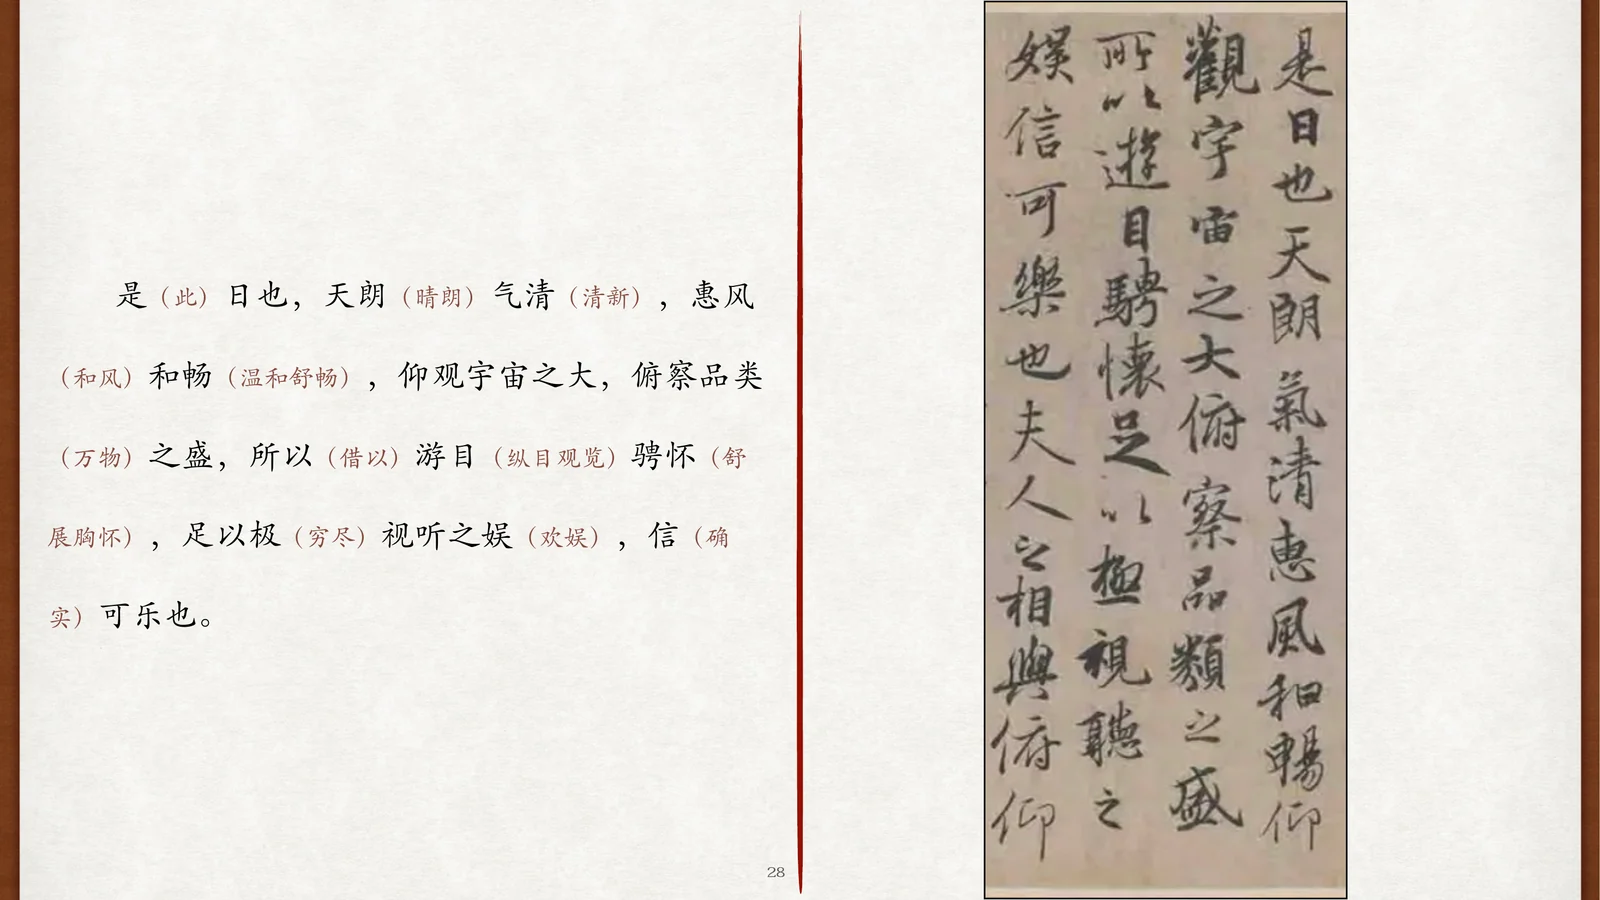 是（此）日也，天朗（晴朗）气清（清新），惠风
（和风）和畅（温和舒畅），仰观宇宙之大，俯察品类
（万物）之盛，所以（借以）游目（纵目观览）骋怀（舒
展胸怀），足以极（穷尽）视听之娱（欢娱），信（确
实）可乐也。
28
是日也天朗氣清惠風和暢仰
觀宇宙之大俯察品類之盛
所以遊目騁懷足以極視聽之
娱信可樂也夫人之相與俯仰